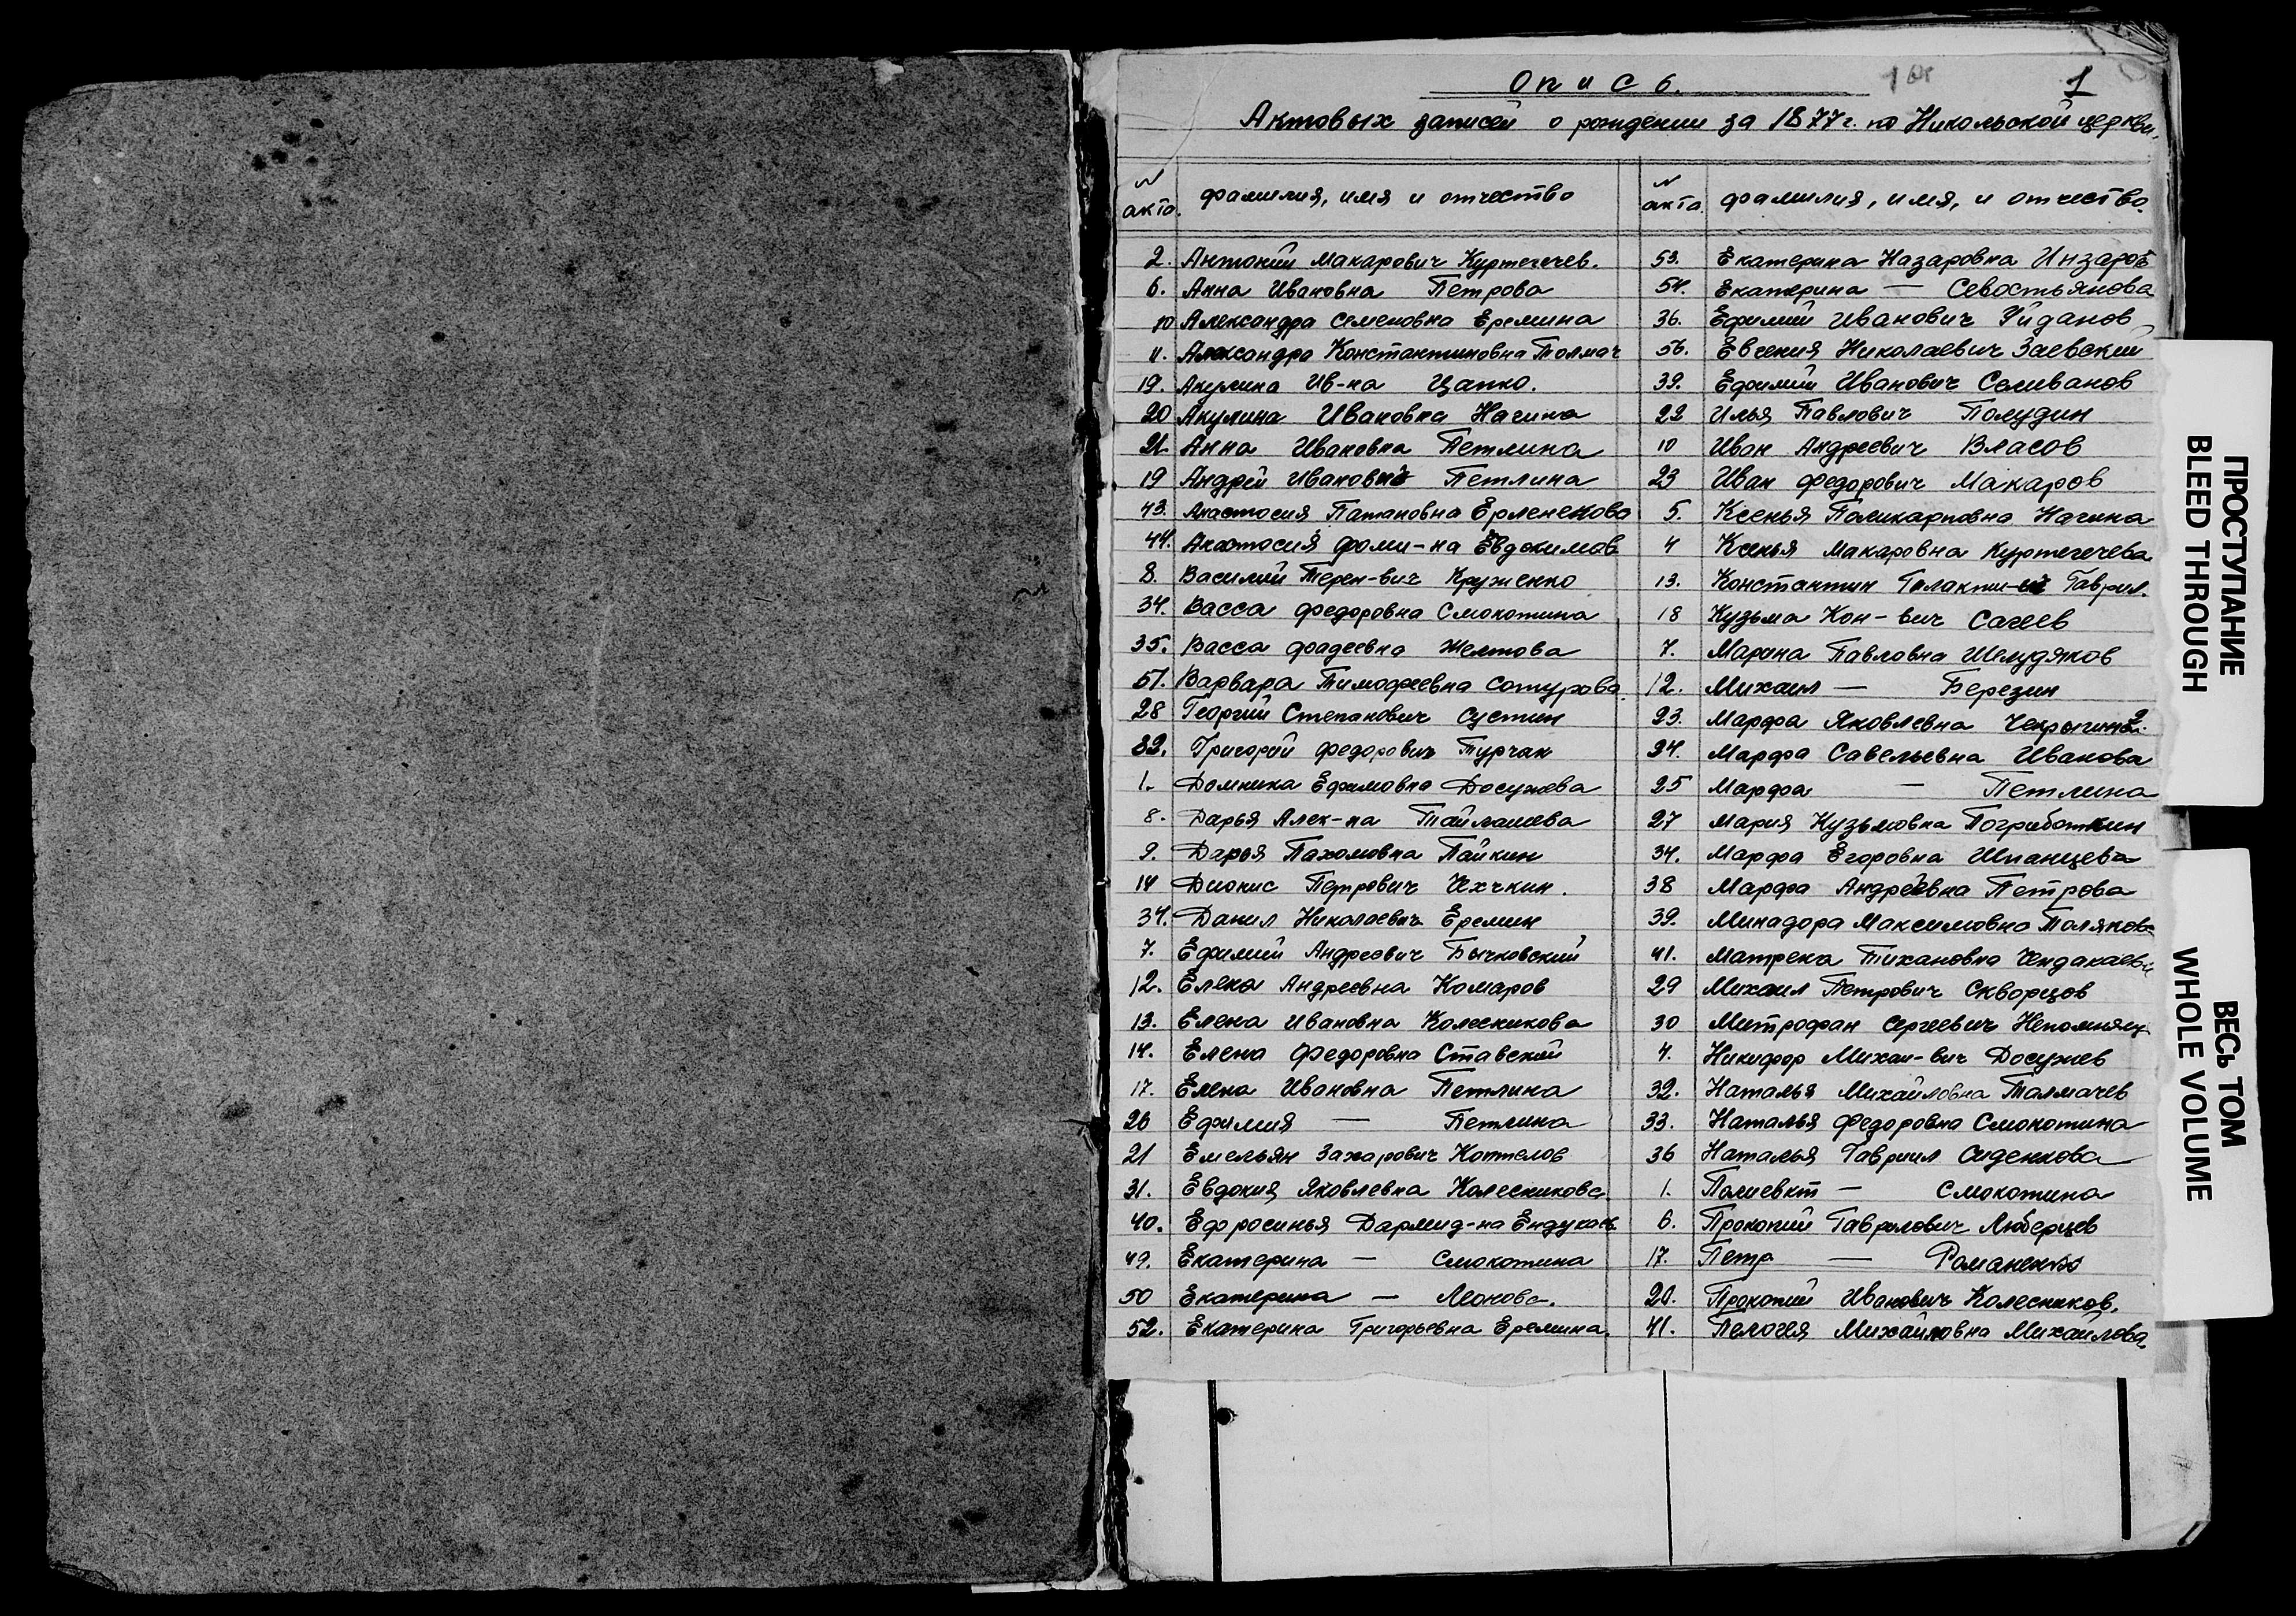 Опись. 1
Актовых записей о рождении за 1877 г. по Никольской церкви.
№ акта. фамилия, имя и отчество
2. Антоний Макарович Куртегечев.
6. Анна Ивановна Петрова
10 Александра Семеновна Еремина
11. Александра Константиновна Толмач
19. Акулина Ив-на Цапко.
20 Акулина Ивановна Начина
21. Анна Ивановна Петлина
19 Андрей Иванович Петлина
43. Анастасия Патаповна Ерленекова
44. Анастасия Фоми-на Евдокимов
8. Василий Терен-вич Круженко
34. Васса Федоровна Смокотина
35. Васса Фадеевна Желтова
51. Варвара Тимофеевна Сотурова
28 Георгий Степанович Сустин
32. Григорий Федорович Турчак
1. Домника Ефимовна Досужева
8. Дарья Алек-на Тайлашева
9. Дарья Пахомовна Пайкин
14 Дионис Петрович Чехчкин.
34. Данил Николаевич Еремин
7. Ефимий Андреевич Бычковский
12. Елена Андреевна Комаров
13. Елена Ивановна Колесникова
14. Елена Федоровна Ставский
17. Елена Ивановна Петлина
20 Ефимия — Петлина
21 Емельян Захарович Коттелов
31. Евдокия Яковлевна Колесникова
40. Ефросинья Дармид-на Ендукаев
49. Екатерина — Смокотина
50 Екатерина — Леонова.
52. Екатерина Григорьевна Еремина.
№ акта. фамилия, имя, и отчество.
53. Екатерина Назаровна Инзаров
54. Екатерина — Севостьянова
36. Ефимий Иванович Уйданов
56. Евгения Николаевич Заевский
39. Ефимий Иванович Селиванов
22 Илья Павлович Полудин
10 Иван Андреевич Власов
23 Иван Федорович Макаров
5. Ксенья Поликарповна Начина
4 Ксенья Макаровна Куртегечева
13. Константин Галакти-ич Гаврил.
18 Кузьма Кон-вич Сагеев
7. Марина Павловна Шелудяков
12. Михаил — Березин
23. Марфа Яковлевна Чекрыгина
24. Марфа Савельевна Иванова
25 Марфа — Петлина
27 Мария Кузьмовна Погриботкин
34. Марфа Егоровна Шпанцева
38 Марфа Андреевна Петрова
39. Минадора Максимовна Поляков
41. Матрена Тихановна Чендакаева
29 Михаил Петрович Скворцов
30 Митрофан Сергеевич Непомнящ
4. Никифор Михаи-вич Досужев
32. Наталья Михайловна Талмачев
33. Наталья Федоровна Смокотина
36 Наталья Гавриил Сиденкова
1. Полиевкт — Смокотина
6. Прокопий Гаврилович Люберцев
17. Петр — Романенко
20. Прокопий Иванович Колесников.
41. Пелогея Михайловна Михайлова.
ПРОСТУПАНИЕ
BLEED THROUGH
ВЕСЬ ТОМ
WHOLE VOLUME